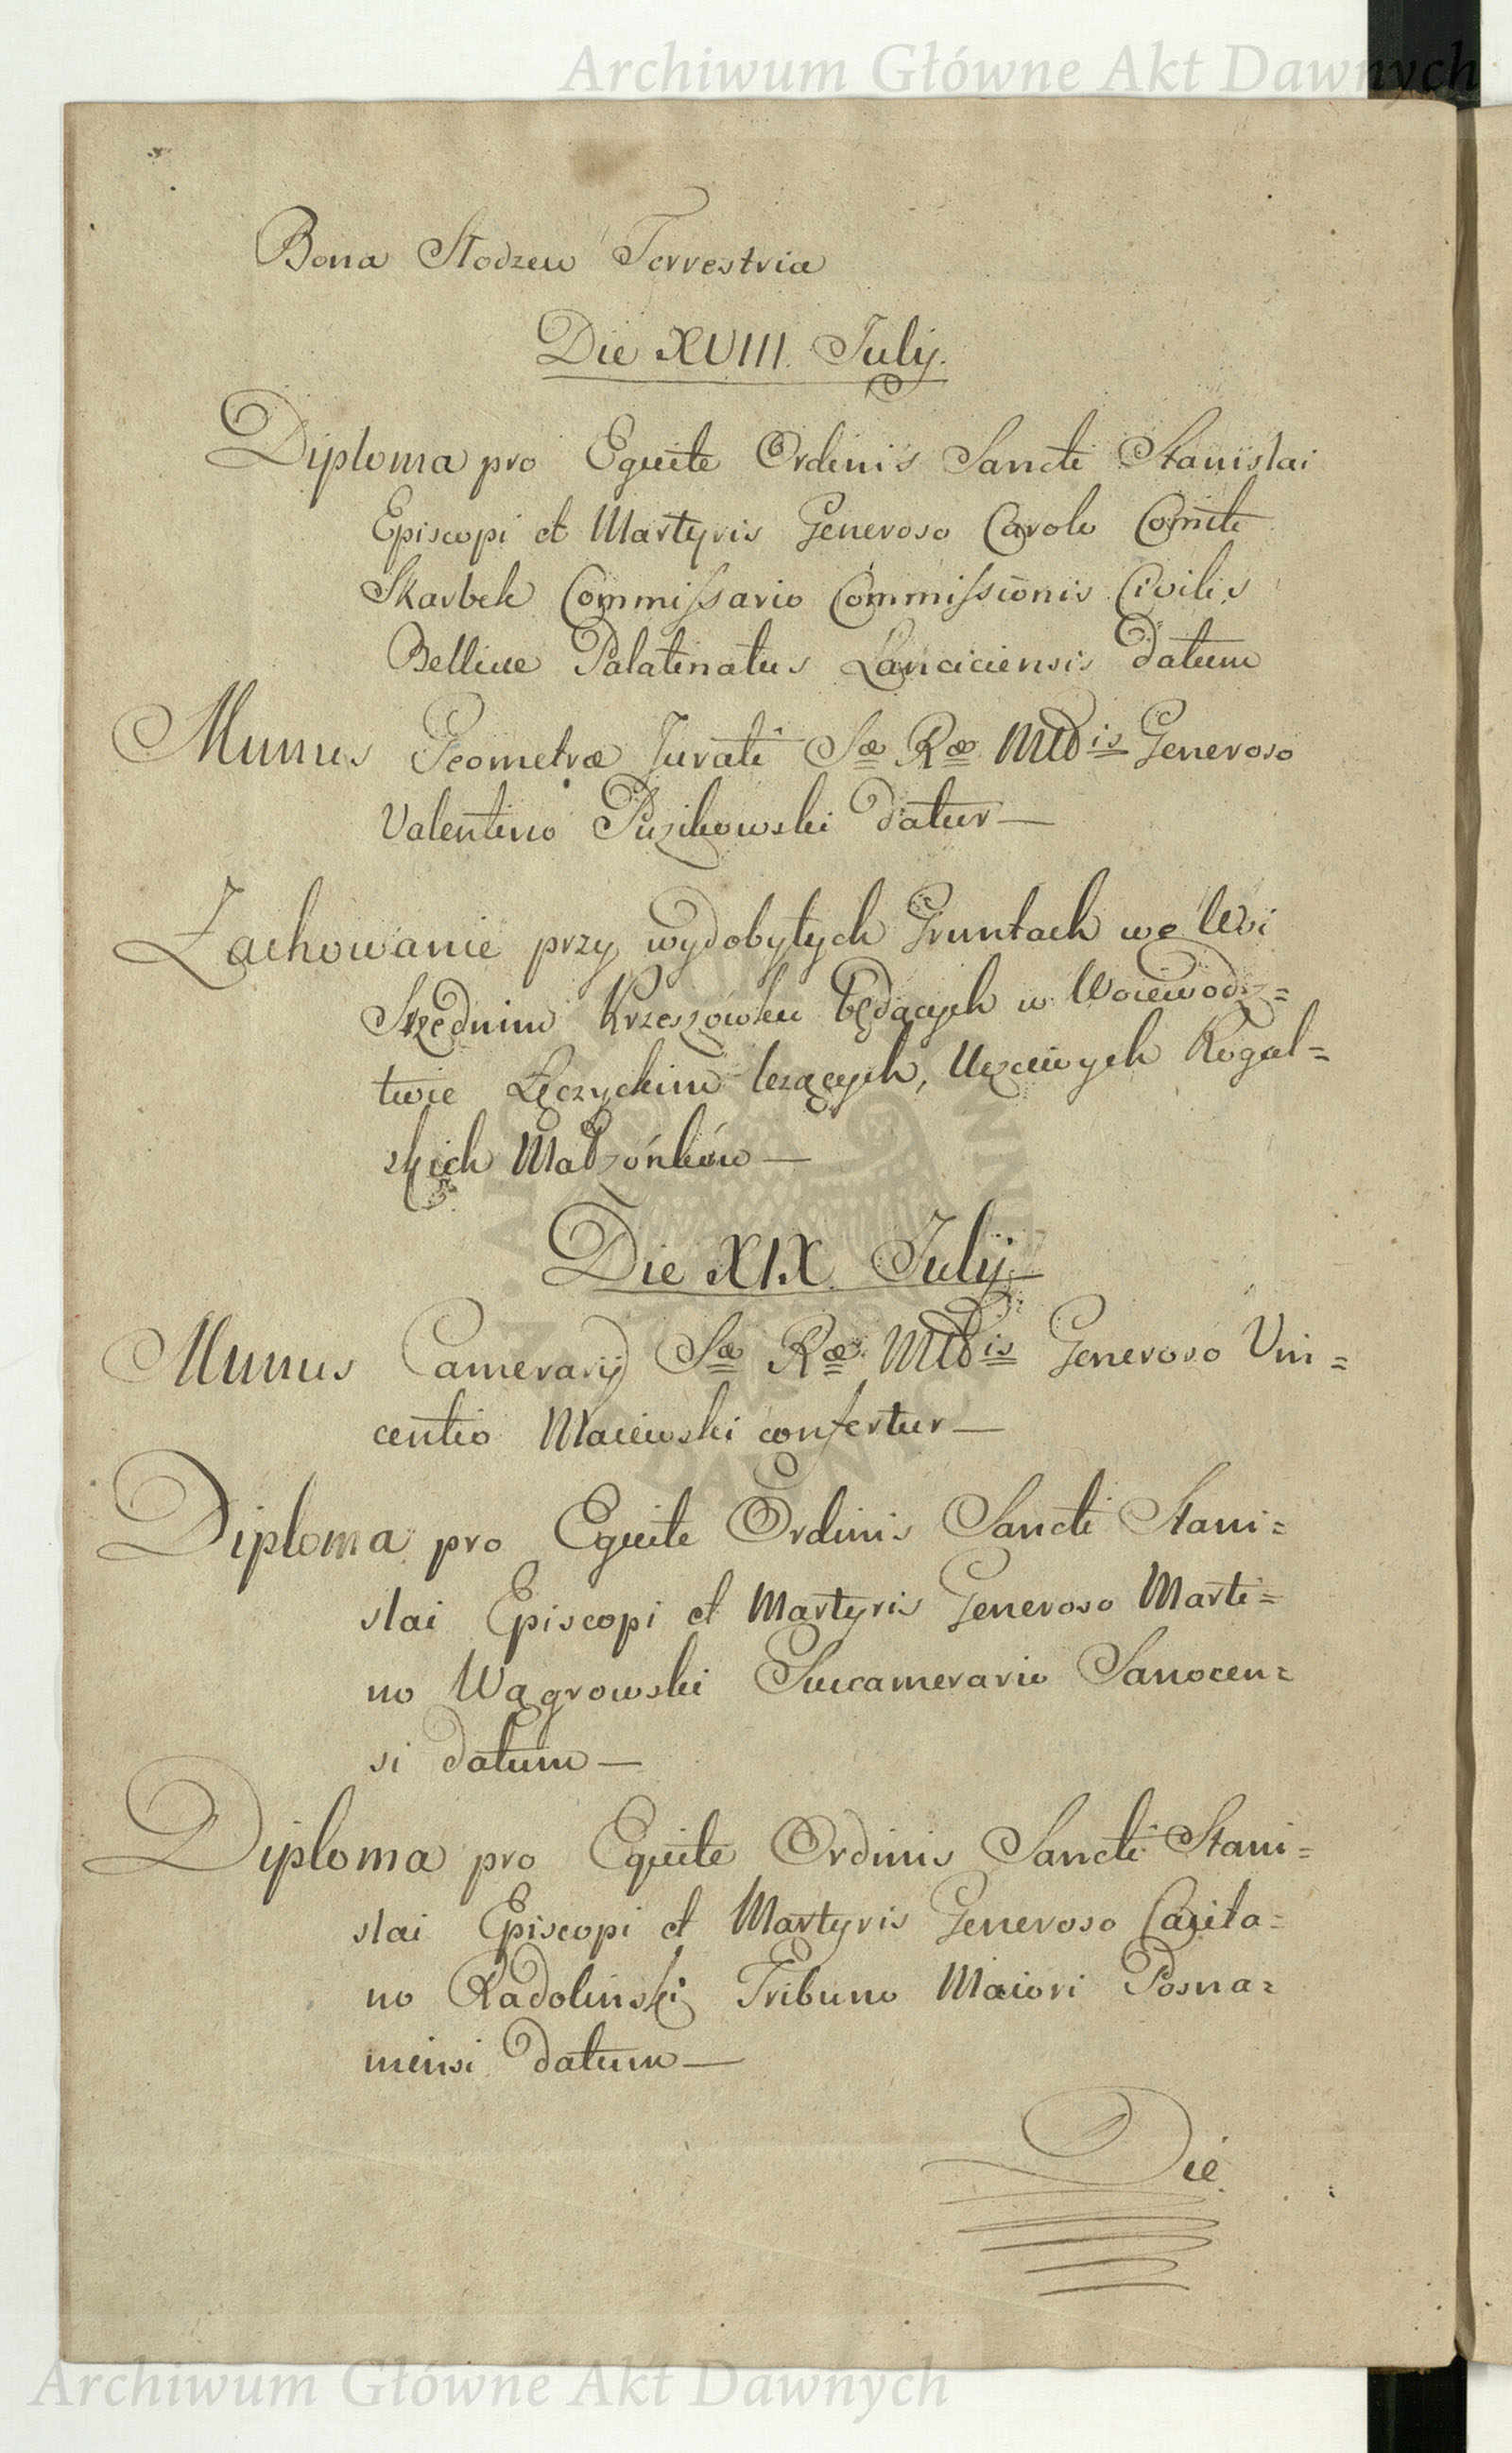 Archiwum Główne Akt Dawnych
Bona Stodzew Terrestria
Die XVIII. July.
Diploma pro Equite Ordinis Sancti Stanislai
Episcopi et Martyris Generoso Carolo Comite
Skarbek Commissario Commissionis Civilis
Bellicae Palatinatus Lanciciensis datum
Munus Geometræ Jurati Sæ Ræ Mtis Generoso
Valentino Puzikowski datur —
Zachowanie przy wydobytych Gruntach we Wsi
Srzednim Krzeszówku będących w Woiewodz=
twie Łęczyckim leżących, Uczciwych Rogal=
skich Małżónków —
Die XIX. July
Munus Camerarij Sæ Ræ Mtis Generoso Vin=
centio Maiewski confertur —
Diploma pro Equite Ordinis Sancti Stani=
slai Episcopi et Martyris Generoso Marti=
no Wągrowski Succamerario Sanocen=
si datum —
Diploma pro Equite Ordinis Sancti Stani=
slai Episcopi et Martyris Generoso Cajeta=
no Radolinski Tribuno Maiori Posna=
niensi datum —
Die
Archiwum Główne Akt Dawnych